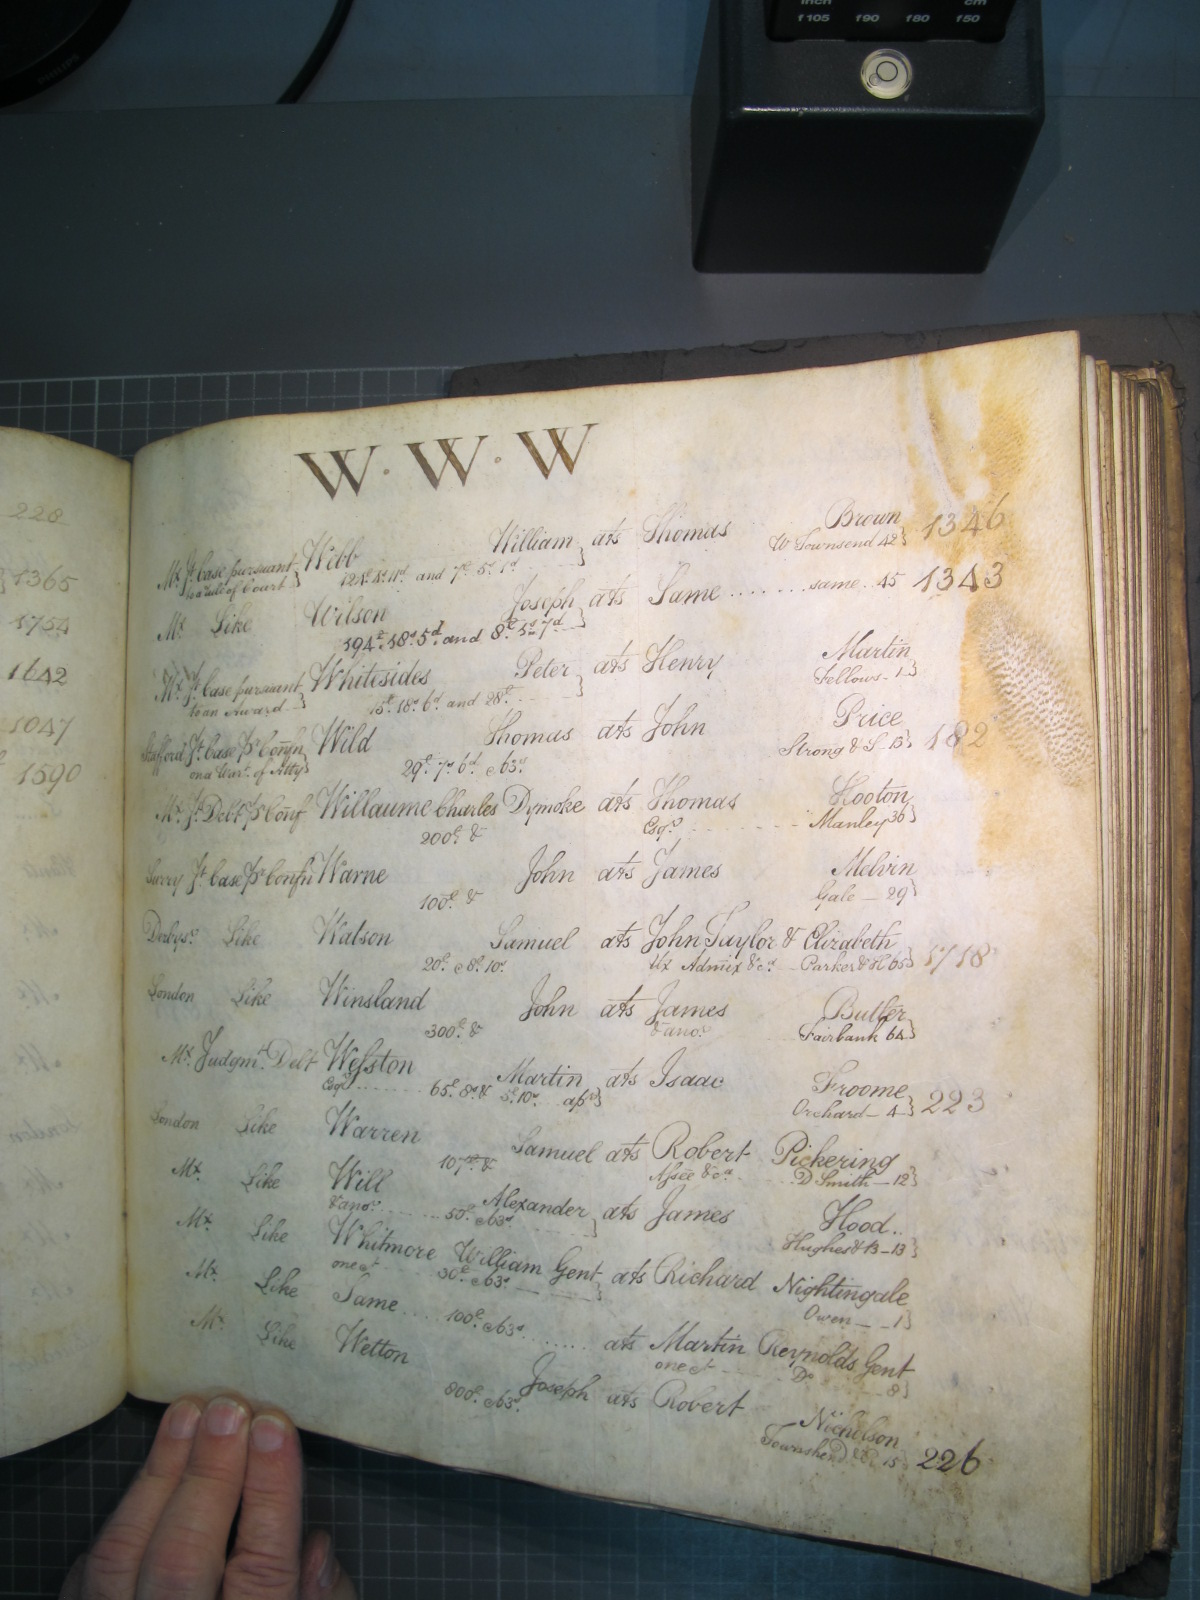 inch cm
f105 f90 f80 f50
PHILIPS
228
1365
1754
1642
1047
1590
W · W · W
Mx. Jt. Case pursuant Webb William ats Thomas Brown 1346
to a Rule of Court 124£ 4s 11d and 7£ 5s 1d W Townsend 42
Mx. Like Wilson Joseph ats Same same 45 1343
194£ 18s 5d and 8£ 1s 7d
Mx. Jt. Case pursuant Whitesides Peter ats Henry Martin
to an Award 15£ 18s 6d and 28£ Fellows - 1
Stafford Jt. Case pr Confn Wild Thomas ats John Price 182
on a Warrt. of Atty 29£ 7s 6d & 63s Strong & S - 13
Mx. Jt. Debt pr Conf Willaume Charles Dymoke ats Thomas Hooton
200£ & Esqr. Manley 36
Surry Jt. Case pr Confn Warne John ats James Melvin
100£ & Gale - 29
Derbys. Like Watson Samuel ats John Taylor & Elizabeth 1718
20£ & 8£ 10s Ux Admix &ca Parker & H 65
London Like Winsland John ats James Butler
300£ & & anor. Fairbank 64
Mx. Judgmt. Debt Welston Martin ats Isaac Froome 223
Esqr. 65£ 8s & 5£ 10s Orchard - 4
London Like Warren Samuel ats Robert Pickering
107£ & Assee &ca D Smith - 12
Mx. Like Will Alexander ats James Hood
& anor. 50£ & 63s Hughes & B - 13
Mx. Like Whitmore William Gent ats Richard Nightingale
one &c 30£ & 63s Owen - 1
Mx. Like Same 100£ & 63s ats Martin Reynolds Gent
one &c Do 8
Mx. Like Wetton Joseph ats Robert Nicholson
800£ & 63s Townshend 15 226